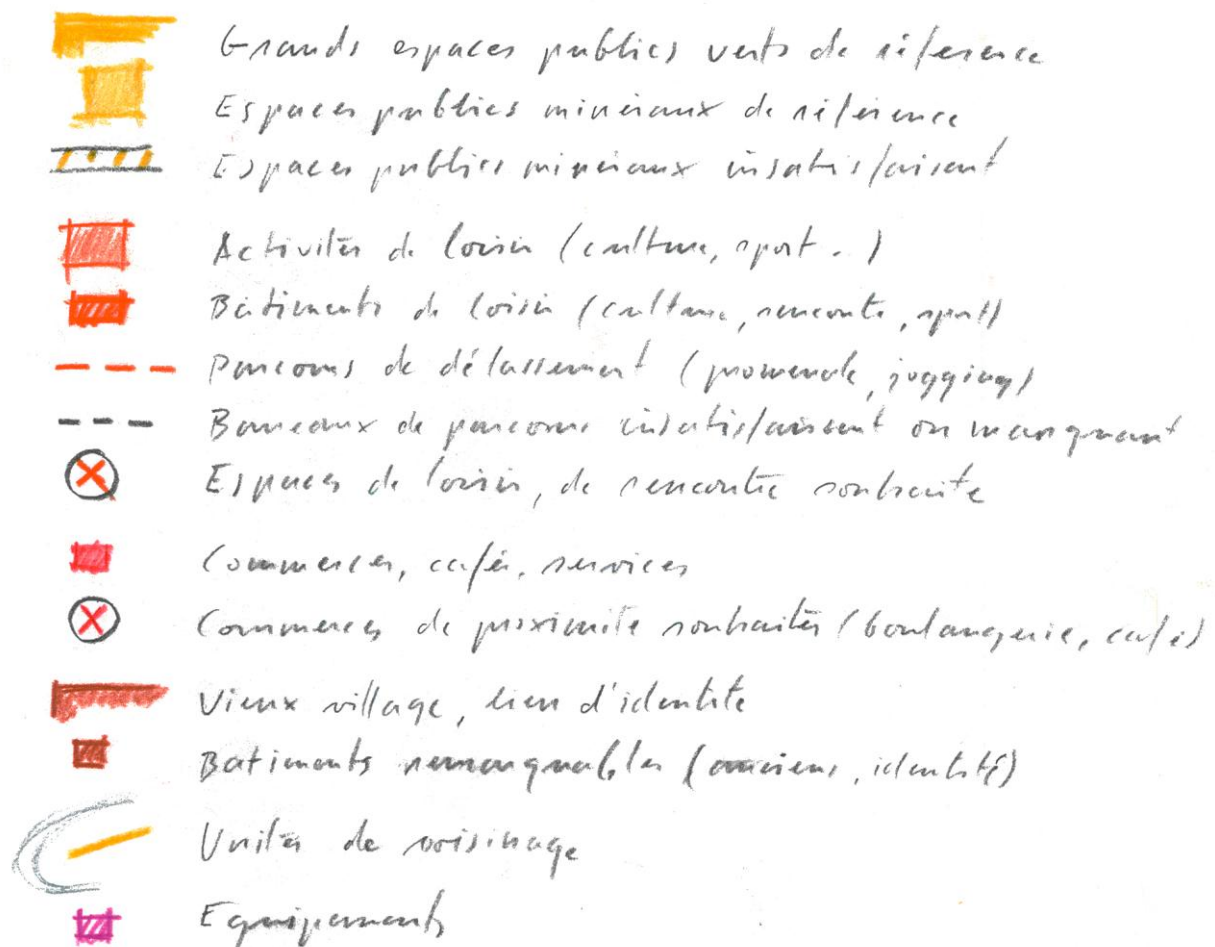 Grands espaces publics verts de référence
Espaces publics minéraux de référence
Espaces publics minéraux insatisfaisant
Activités de loisir (culture, sport..)
Bâtiments de loisir (culture, rencontre, sport)
Parcours de délassement (promenade, jogging)
Bameaux de parcours insatisfaisant ou manquant
Espaces de loisir, de rencontre souhaité
Commerces, cafés, services
Commerces de proximité souhaités (boulangerie, cafés)
Vieux village, lieu d'identité
Batiments remarquables (anciens, identité)
Unités de voisinage
Equipements